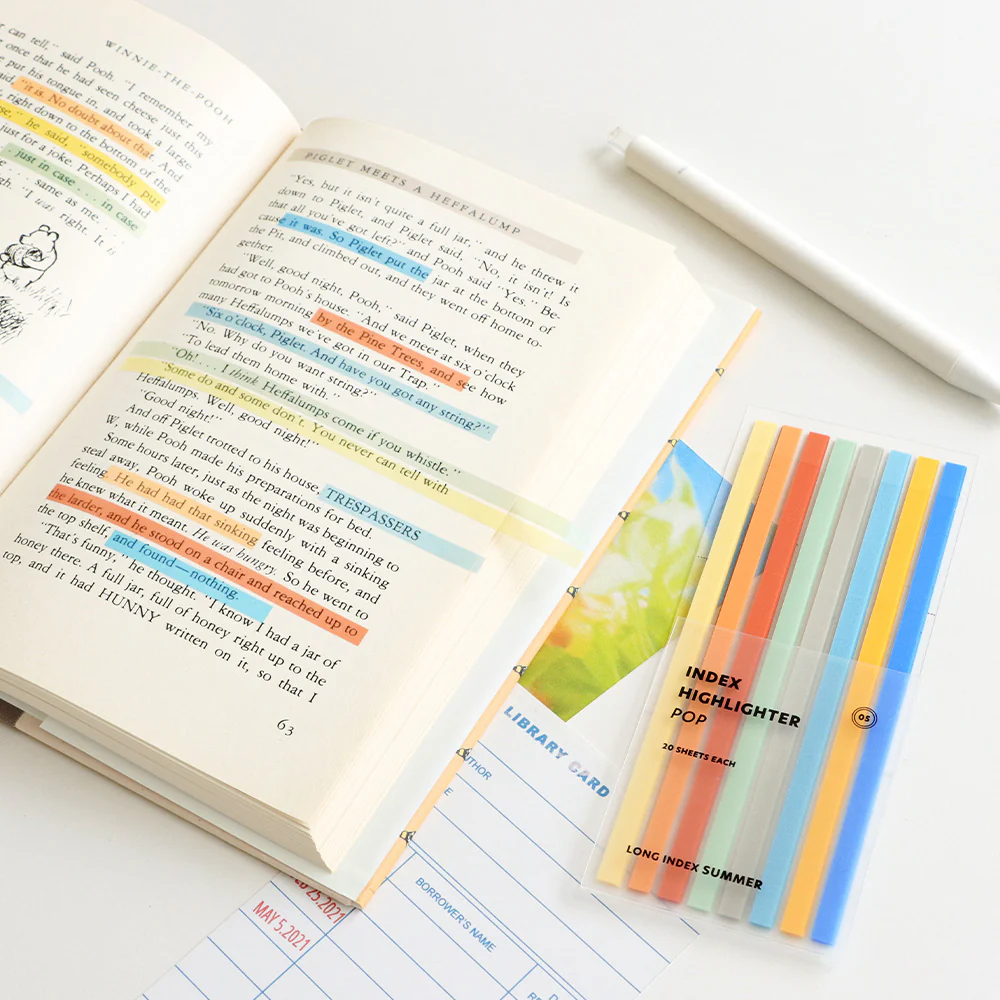 WINNIE-THE-POOH
can tell," said Pooh. "I remember my
once that he had seen cheese just this
put his tongue in, and took a large
"it is. No doubt about that. And
right down to the bottom of the
he said, "somebody put
just for a joke. Perhaps I had
just in case . . . in case
. . . same as me. . .
"I was right. It is
PIGLET MEETS A HEFFALUMP
"Yes, but it isn't quite a full jar," and he threw it
down to Piglet, and Piglet said, "No, it isn't! Is
that all you've got left?" and Pooh said "Yes." Be-
cause it was. So Piglet put the jar at the bottom of
the Pit, and climbed out, and they went off home to-
gether.
"Well, good night, Pooh," said Piglet, when they
had got to Pooh's house. "And we meet at six o'clock
tomorrow morning by the Pine Trees, and see how
many Heffalumps we've got in our Trap."
"Six o'clock, Piglet. And have you got any string?"
"No. Why do you want string?"
"To lead them home with."
"Oh! . . . I think Heffalumps come if you whistle."
"Some do and some don't. You never can tell with
Heffalumps. Well, good night!"
"Good night!"
And off Piglet trotted to his house TRESPASSERS
W, while Pooh made his preparations for bed.
Some hours later, just as the night was beginning to
steal away, Pooh woke up suddenly with a sinking
feeling. He had had that sinking feeling before, and
he knew what it meant. He was hungry. So he went to
the larder, and he stood on a chair and reached up to
the top shelf, and found—nothing.
"That's funny," he thought. "I know I had a jar of
honey there. A full jar, full of honey right up to the
top, and it had HUNNY written on it, so that I
63
LIBRARY CARD
BORROWER'S NAME
MAY 5,2021
INDEX
HIGHLIGHTER
POP
05
20 SHEETS EACH
LONG INDEX SUMMER